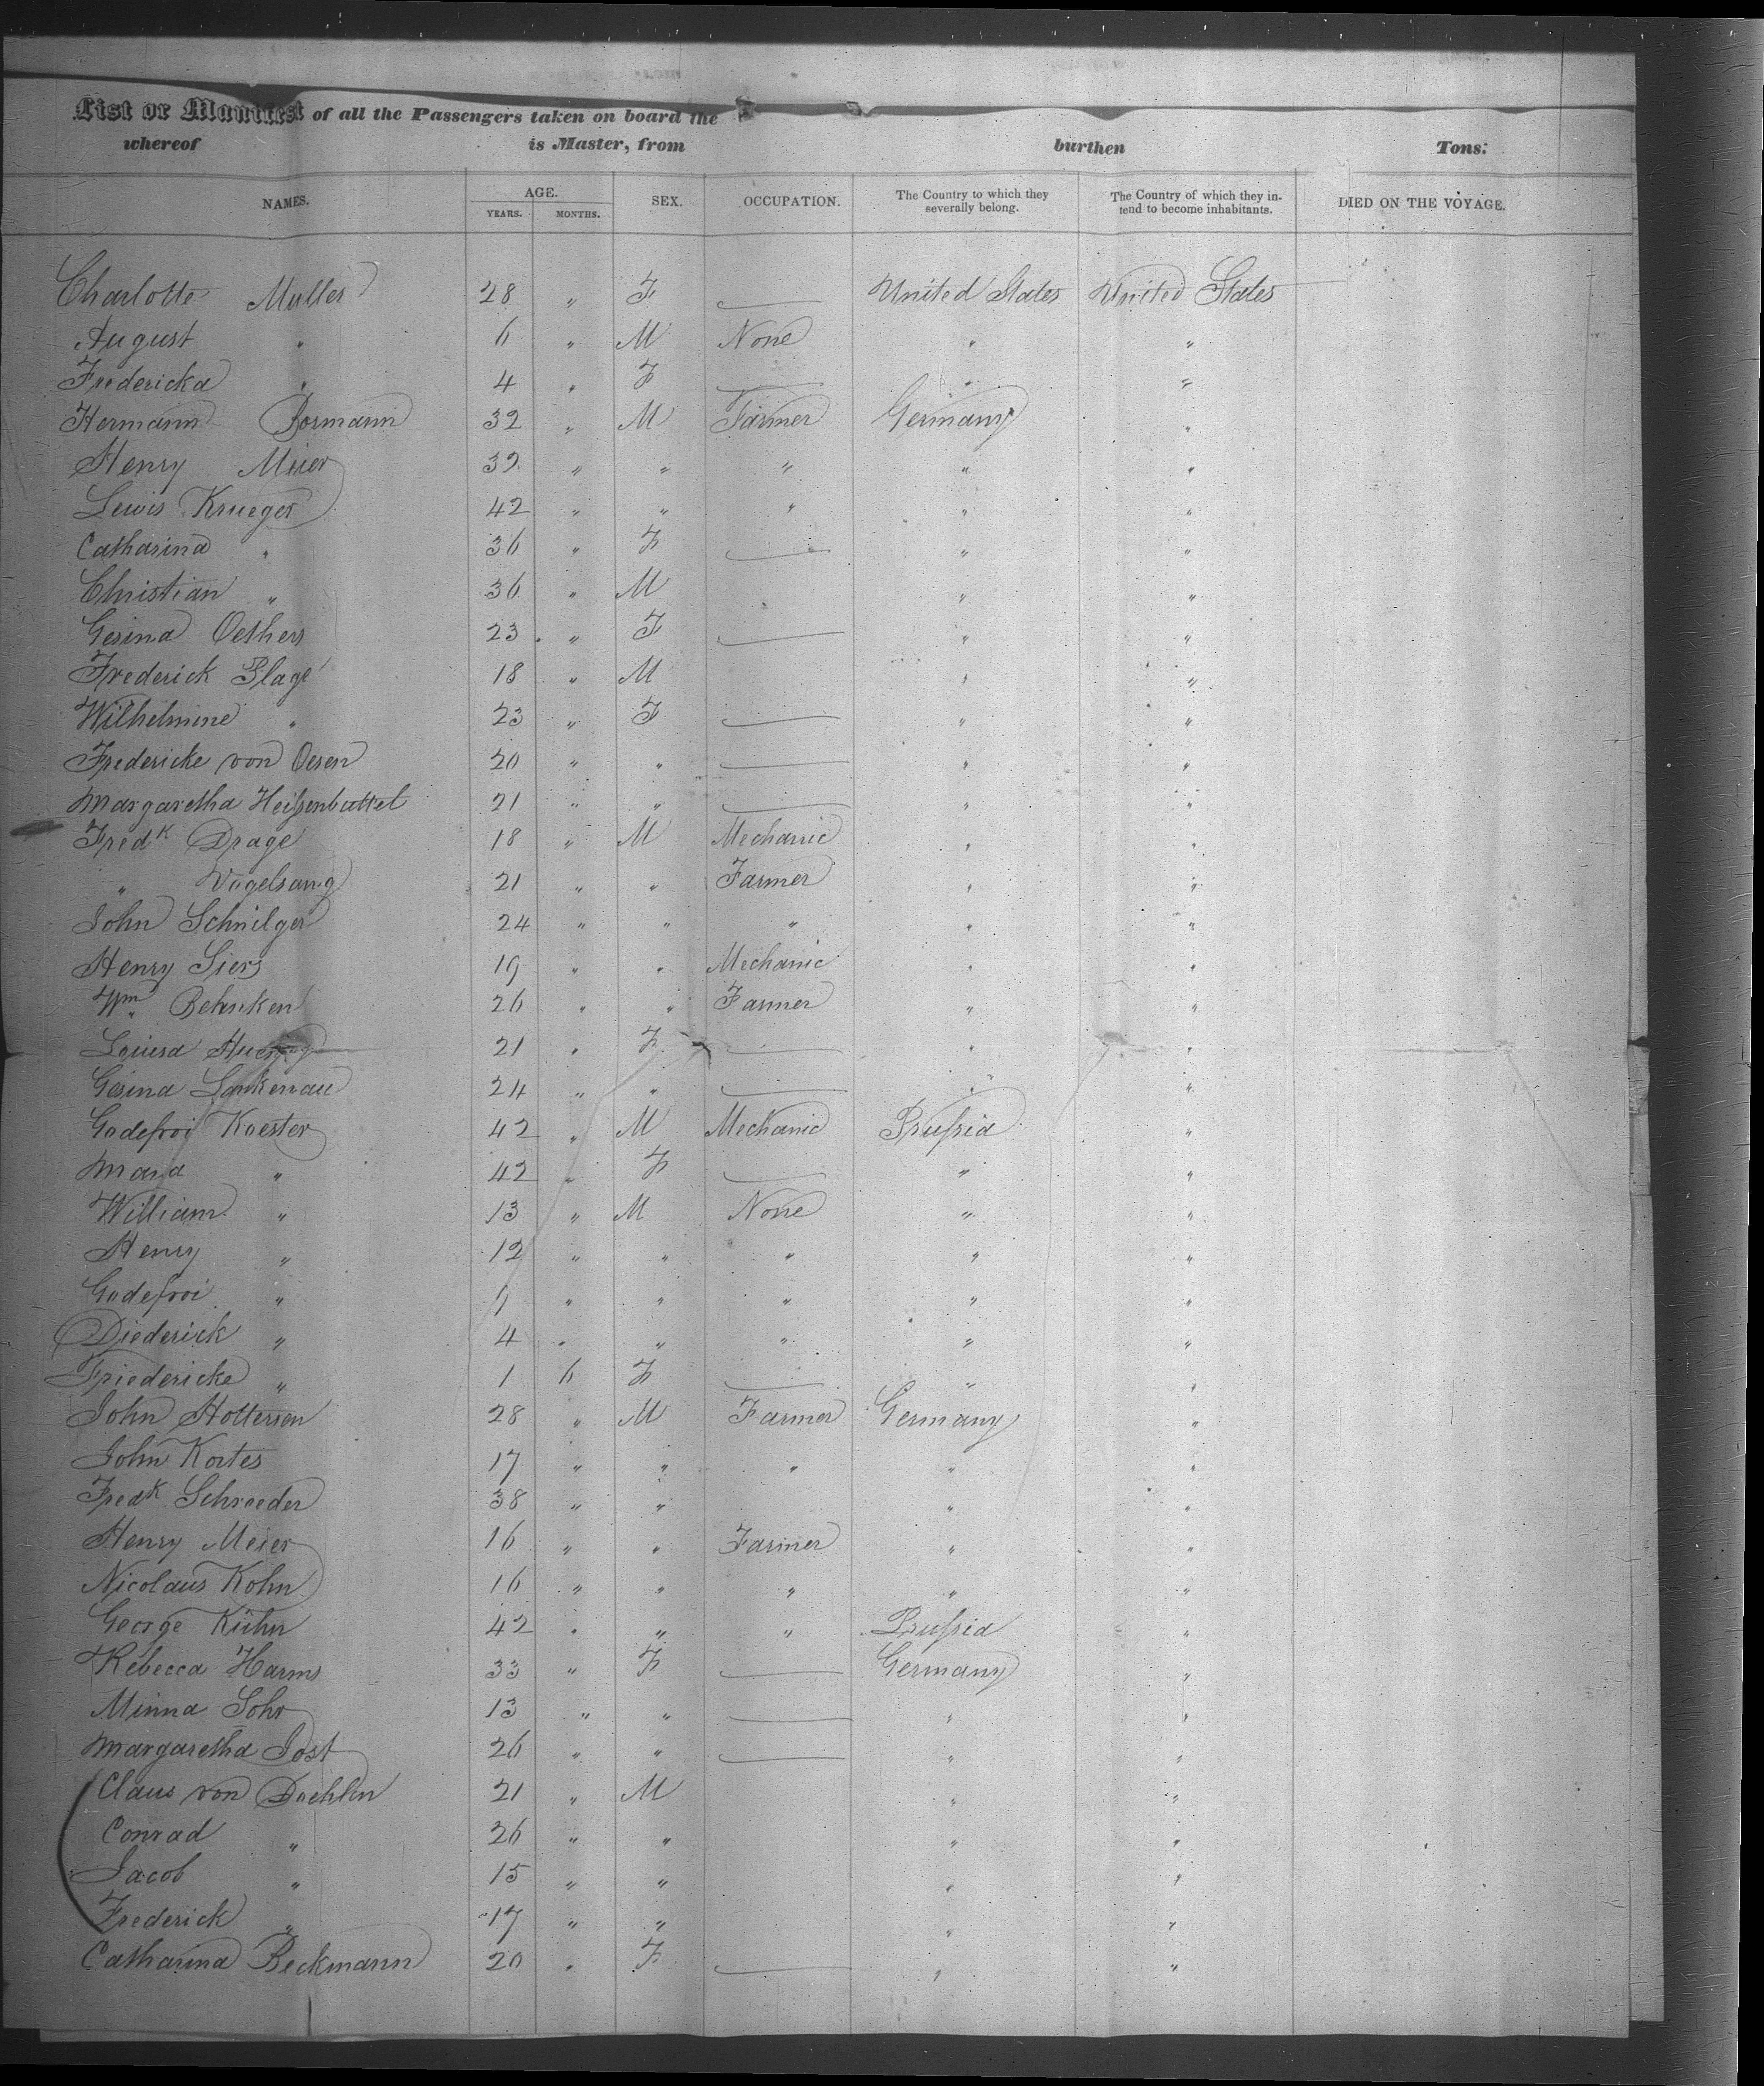 List or Manifest of all the Passengers taken on board the
whereof is Master, from burthen Tons:
NAMES. AGE. YEARS. MONTHS. SEX. OCCUPATION. The Country to which they severally belong. The Country of which they intend to become inhabitants. DIED ON THE VOYAGE.
Charlotte Muller 28 " F — United States United States
August " 6 " M None " "
Fredericka " 4 " F — " "
Hermann Bormann 32 " M Farmer Germany "
Henry Meier 32 " " " " "
Lewis Krueger 42 " " " " "
Catharina " 36 " F — " "
Christian " 36 " M " "
Gesina Oethers 23 " F — " "
Frederick Plage 18 " M " "
Wilhelmine " 23 " F — " "
Fredericke von Oesen 20 " " — " "
Margaretha Heißenbuttel 21 " " — " "
Fredk Drage 18 " M Mechanic " "
" Vogelsang 21 " " Farmer " "
John Schnilger 24 " " " " "
Henry Siers 19 " " Mechanic " "
Wm Behnken 26 " " Farmer " "
Louisa 21 " F — " "
Gesina Lankenau 24 " " — " "
Godefroi Koester 42 " M Mechanic Prußia "
Maria " 42 " F — " "
William " 13 " M None " "
Henry " 12 " " " " "
Godefroi " 9 " " " " "
Diederick " 4 " " " " "
Friedericke " 1 6 F — " "
John Holtersen 28 " M Farmer Germany "
John Kortes 17 " " " " "
Fredk Schroeder 38 " " " "
Henry Meier 16 " " Farmer " "
Nicolaus Kohn 16 " " " " "
George Kühn 42 " " " Prußia "
Rebecca Harms 33 " F — Germany "
Minna Sohr 13 " " — " "
Margaretha Jost 26 " " — " "
Claus von Doehlen 21 " M " "
Conrad " 26 " " " "
Jacob " 15 " " " "
Frederick " 17 " " " "
Catharina Beckmann 20 " F — " "